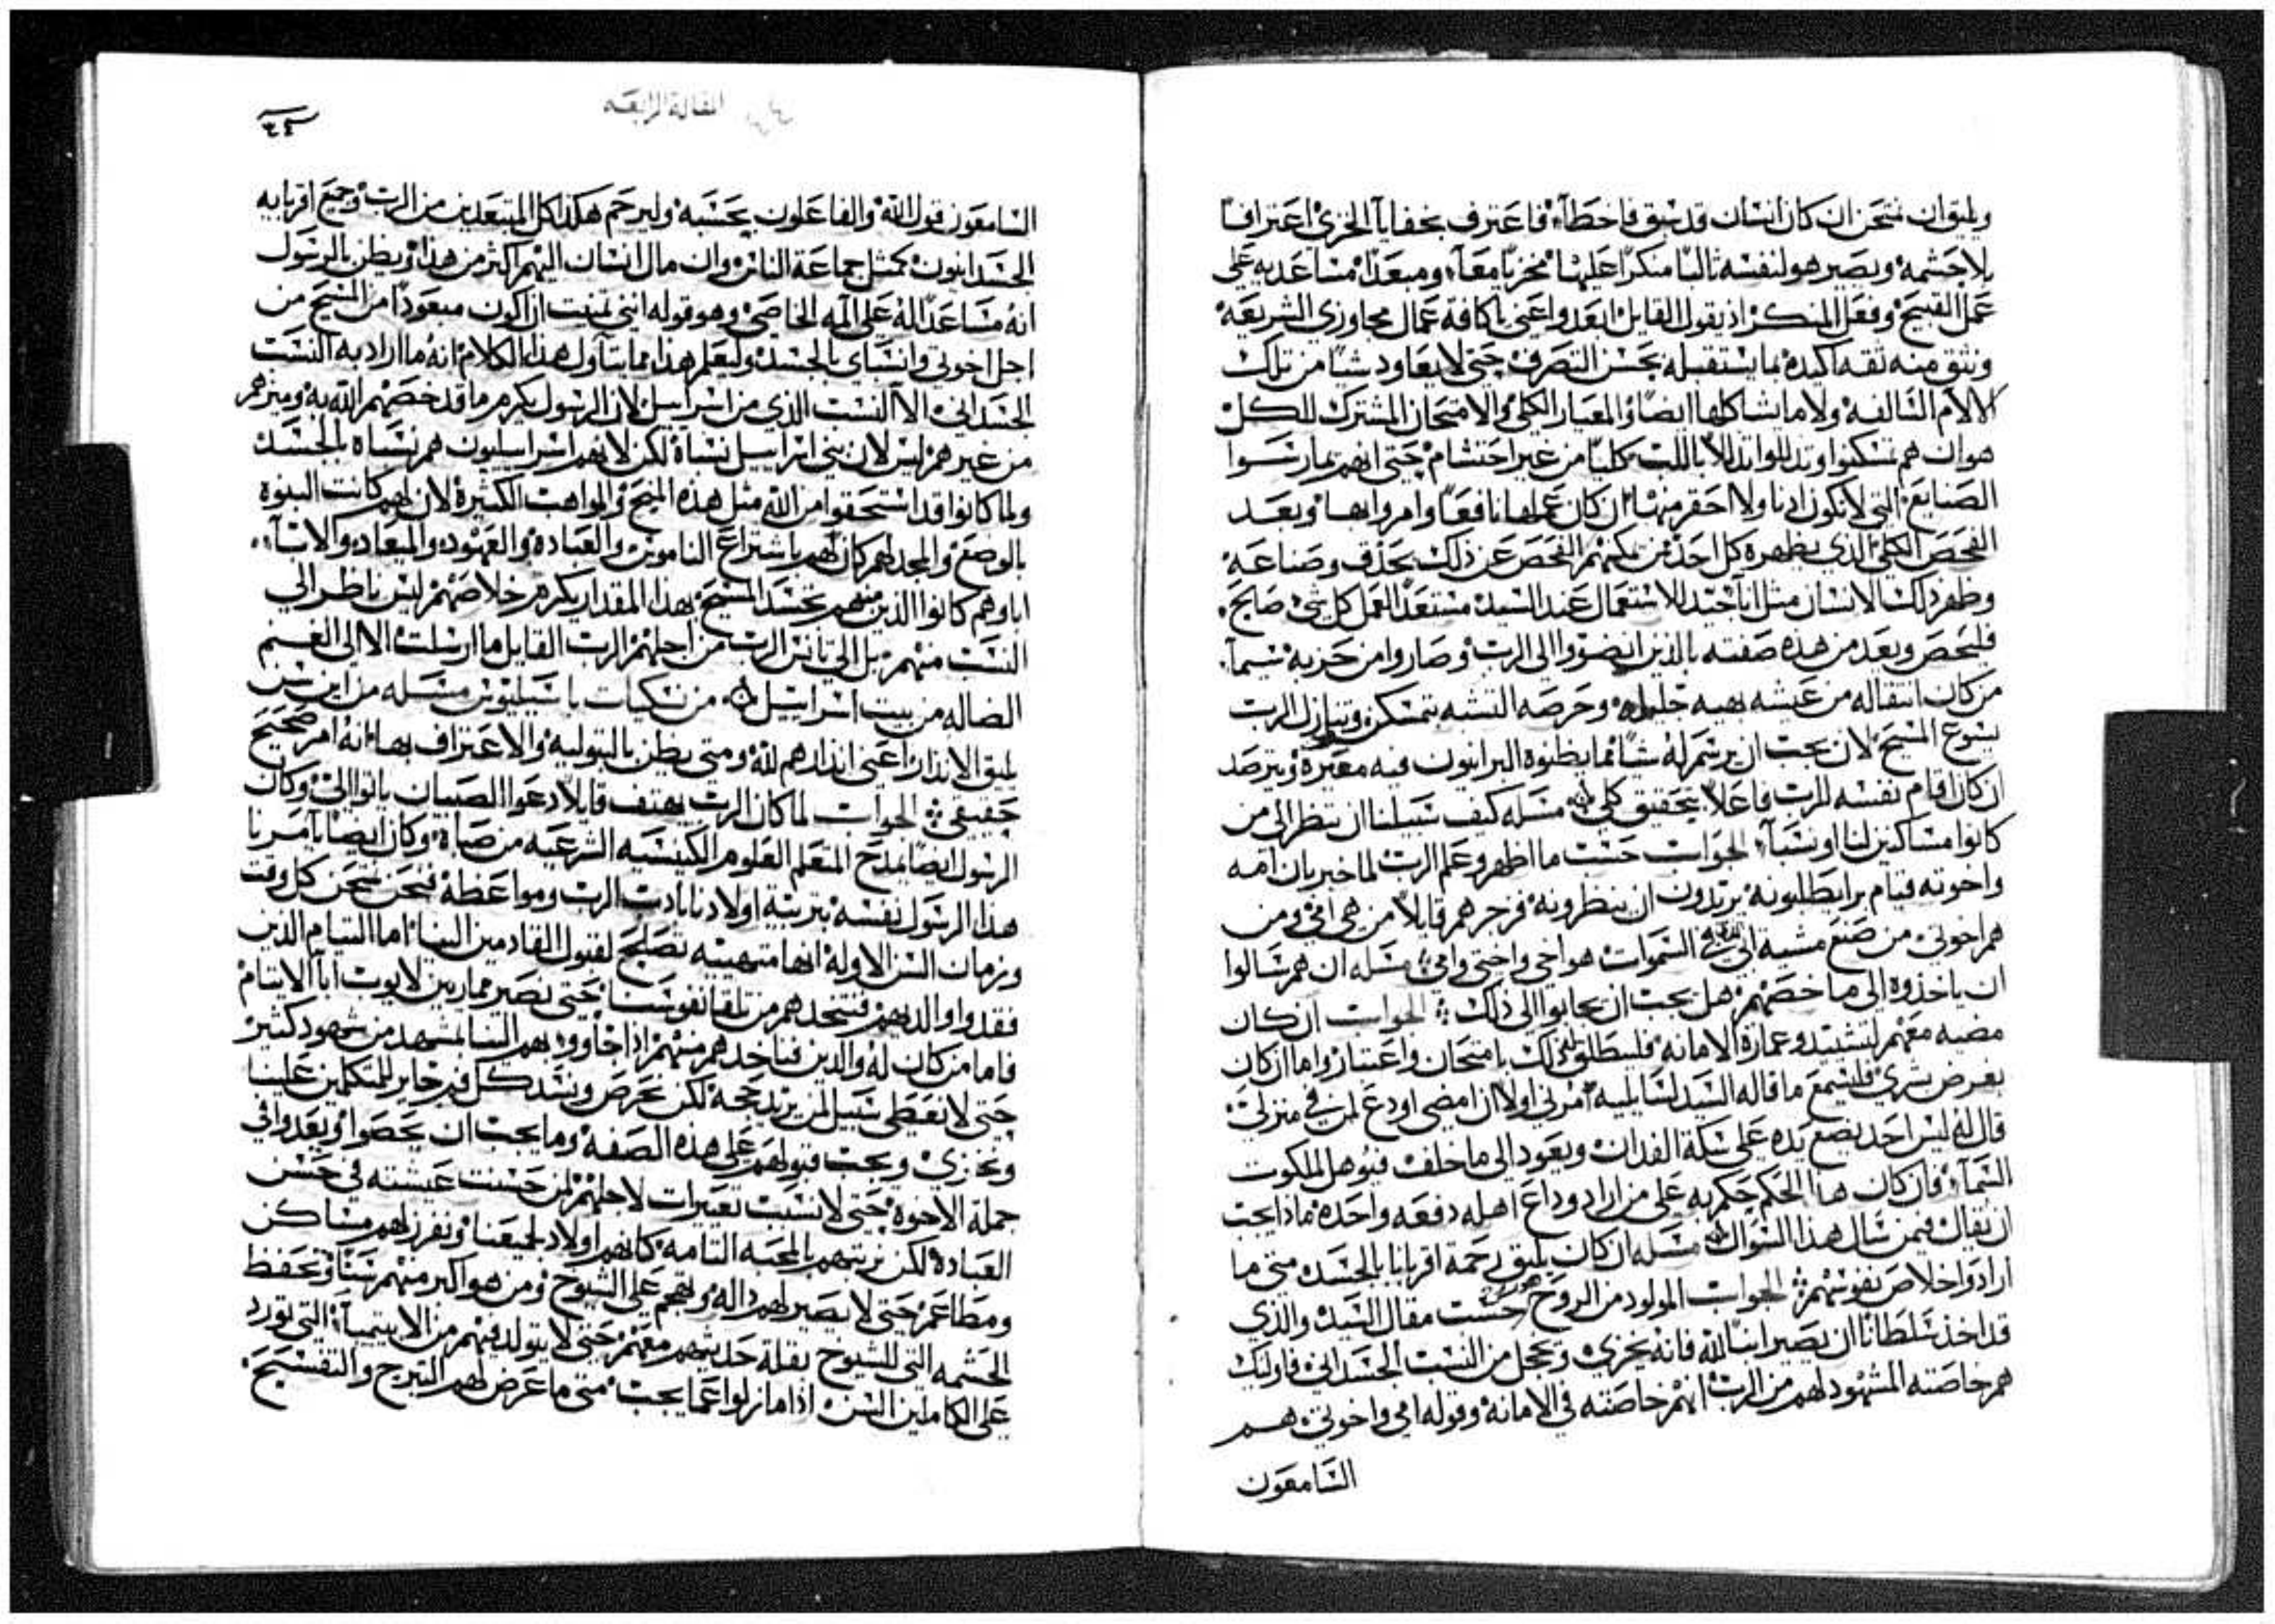 ويليق ان نمتحن ان كان انسان قد سبق فاخطآ، فاعترف بخفايآ الخزي اعترافاً
بلا حشمة، ويصير هو لنفسه ثالباً منكراً عليها مخزياً معاً، ومبعداً مساعديه على
عمل القبيح، وفعل المنكر اذ يقول القايل ابعدوا عني ياكافة عمال مجاوزي الشريعة،
ونثق منه ثقه اكيده بما يستقبله بحسن التصرف حتى لا يعاود شياً من تلك
الالام السالفه، ولا ما يشاكلها ايضاً، والمعيار الكلي والامتحان المشترك للكل
هو ان هم تمسكنوا وتذللوا تذللاً باللب كلياً من غير احتشام، حتى انهم يمارسوا
الصنايع التي لا يكون ادنا ولا احقر منها، ان كان عملها نافعاً وامروا بها، وبعد
الفحص الكلي الذي يظهره كل احد من يمكنهم الفحص عن ذلك بحذق وصناعه،
وظهر ذلك الانسان مثل انآ جيد للاستعمال عند السيد، مستعداً لعمل كل شي صالح،
فليحص ويعد من هذه صفته بالذين انضووا الى الرب، وصاروا من حزبه، سيمآ
من كان انتقاله من عيشه بهيه جليله، وحرصه التشبه بتمسكن وتنازل الرب
يسوع المسيح، لان يجب ان يرسم له شياً مما يظنوه البرانيون فيه معيره، ويترصد
ان كان اقام نفسه للرب فاعلاً بتحقيق كلي، مسله كيف سبيلنا ان ننظر الى من
كانوا مساكنين لنا او نسبآ، الجواب حسب ما اظهر وعلم الرب لما خبر بان امه
واخوته قيام برا يطلبونه يريدون ان ينظرونه، فزجرهم قايلاً من هي امي، ومن
هم اخوتي، من صنع مشية ابي في السموات هو اخي واختي وامي، مسله ان هم سالوا
ان ياخذوه الى ما خصهم، هل يجب ان يجابوا الى ذلك، الجواب ان كان
مضيه معهم لتشييد وعمارة الامانه، فليطلق ذلك بامتحان واعتبار، واما ان كان
بغرض بشري، فليسمع ما قاله السيد لسايليه، امرني اولاً ان امضي اودع لمن في منزلي،
قال له ليس احد يضع يده على سكة الفدان، ويعود الى ما خلف فيوهل لملكوت
السمآ، فان كان هذا الحكم حكم به على من اراد وداع اهله دفعه واحده، ماذا يجب
ان يقال فيمن سال هذا السوال، مسله ان كان يليق رحمة اقربانا بالجسد، متى ما
ارادوا خلاص نفوسهم، الجواب المولود من الروح حسب مقال السيد، والذي
قد اخذ سلطاناً ان يصير ابناً لله، فانه يخزى ويخجل من النسب الجسداني، فاوليك
هم خاصته المشهود لهم من الرب انهم خاصته في الامانه، وقوله امي واخوتي، هم
السامعون
المقالة الرابعه
٣٤
السامعون قول الله، والفاعلون بحسبه، وليرحم هكذا كل المبتعدين من الرب، وجميع اقربايه
الجسدانيون، كمثل جماعة الناس، وان مال انسان اليهم اكثر من هذا، ويظن بالرسول
انه مساعداً له على المه الخاصي، وهو قوله انني تمنيت ان اكون مبعوداً من المسيح من
اجل اخوتي وانسباي بالجسد، وليعلم هذا مما يتاول هذا الكلام، انه ما اراد به النسب
الجسداني، الا النسب الذي من اسراييل، لان الرسول يكرم ما قد خصهم الله به، وميزهم
من غيرهم، ليس لان بني اسراييل نسباه، لكن لانهم اسراييليون هم نسباه بالجسد
ولما كانوا قد استحقوا من الله مثل هذه المنح، والمواهب الكثيرة، لان لهم كانت البنوة
بالوضع، والمجد لهم كان، لهم باشتراع الناموس، والعباده، والعهود، والميعاد، والابآ،
اباوهم كانوا الذين منهم تجسد المسيح، بهذا المقدار يكرم خلاصهم، ليس ناظر الى
النسب منهم، بل الى تانس الرب من اجلهم، الرب القايل ما ارسلت الا الى الغنم
الضاله من بيت اسراييل، من نسكيات باسيليوس مسله من اين سن
يليق الانذار اعني انذارهم لله، ومتى يظن بالبتوليه، والاعتراف بها، انه امر صحيح
حقيقي، الجواب لما كان الرب يهتف قايلاً، دعوا الصبيان ياتوا الي، وكان
الرسول ايضاً يمدح المتعلم العلوم الكنيسيه الشرعيه من صباه، وكان ايضا يامرنا
هذا الرسول نفسه بتربية اولادنا بادب الرب ومواعظه، فنحن نمتحن كل وقت
وزمان السن الاوله انها متهييه تصلح لقبول القادمين الينا، اما اليتام الذين
فقدوا والديهم، فنتخذهم من تلقا نفوسنا، حتى نصير ممارين لايوب ابا الايتام،
فاما من كان له والدين فناخذهم منهم، اذا جاووا بهم الينا بمشهد من شهود كثير،
حتى لا نعطى سبيل لمن يريد حجه، لكن نحرص ونسد كل فم جاير للمتكلمين علينا
ونخزي، ويجب قبولهم على هذه الصفه، وما يجب ان يحصوا، ويعدوا في
جملة الاخوه، حتى لا نسبب تعييرات لاجلهم لمن حسنت عيشته في حسن
العبادة، لكن نربيهم بالمحبه التامه، كانهم اولاد لجميعنا، ونفرز لهم مساكن
ومطاعم، حتى لا يصير لهم داله، ولا تهجم على الشيوخ، ومن هو اكبر منهم سناً، وتحفظ
الحشمه التي للشيوخ بقلة حديثهم معهم، حتى لا يتولد فيهم من الانتيميآ، التي تورد
على الكاملين السن، اذا ما زلوا عما يجب، متى ما عرض لهم التبرج والتفسيح،